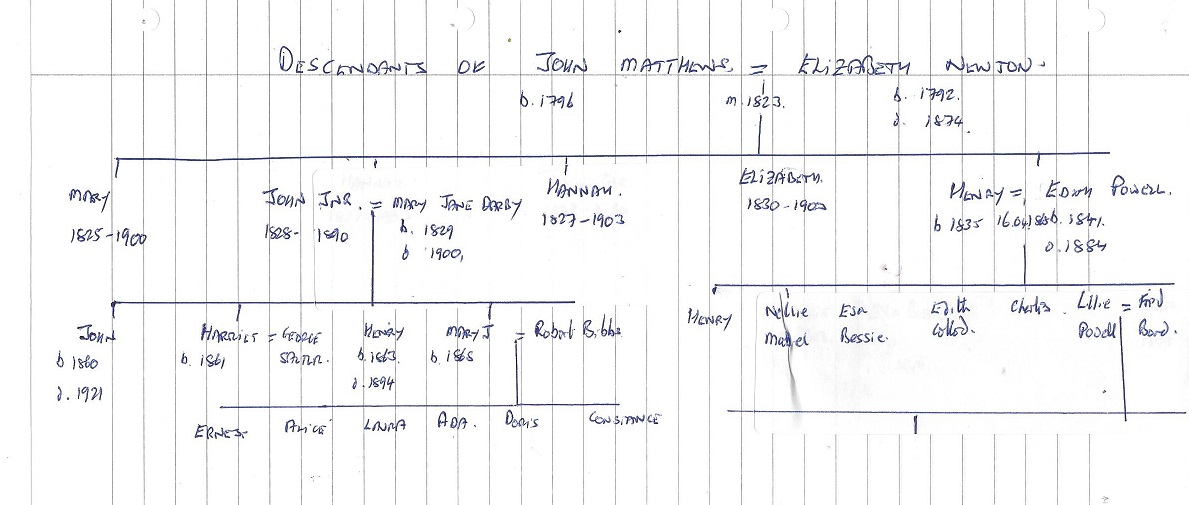 DESCENDANTS OF JOHN MATTHEWS = ELIZABETH NEWTON.
b. 1796 m. 1823. b. 1792.
d. 1874.
MARY JOHN JNR. = MARY JANE DARBY HANNAH. ELIZABETH. HENRY = EDITH POWELL.
1825-1900 1828- 1890 b. 1829 1827-1903 1830-1900 b 1835 b. 1841.
b 1900, d. 1884
JOHN HARRIET = GEORGE HENRY MARY J = Robert Bibbs HENRY Nellie Esa Edith Charles. Lillie = Fred
b 1860 b. 1861 b. 1863. b. 1865 Mabel Bessie. Powell Bond.
d. 1921 d. 1894
ERNEST ALICE LAURA ADA. DORIS CONSTANCE